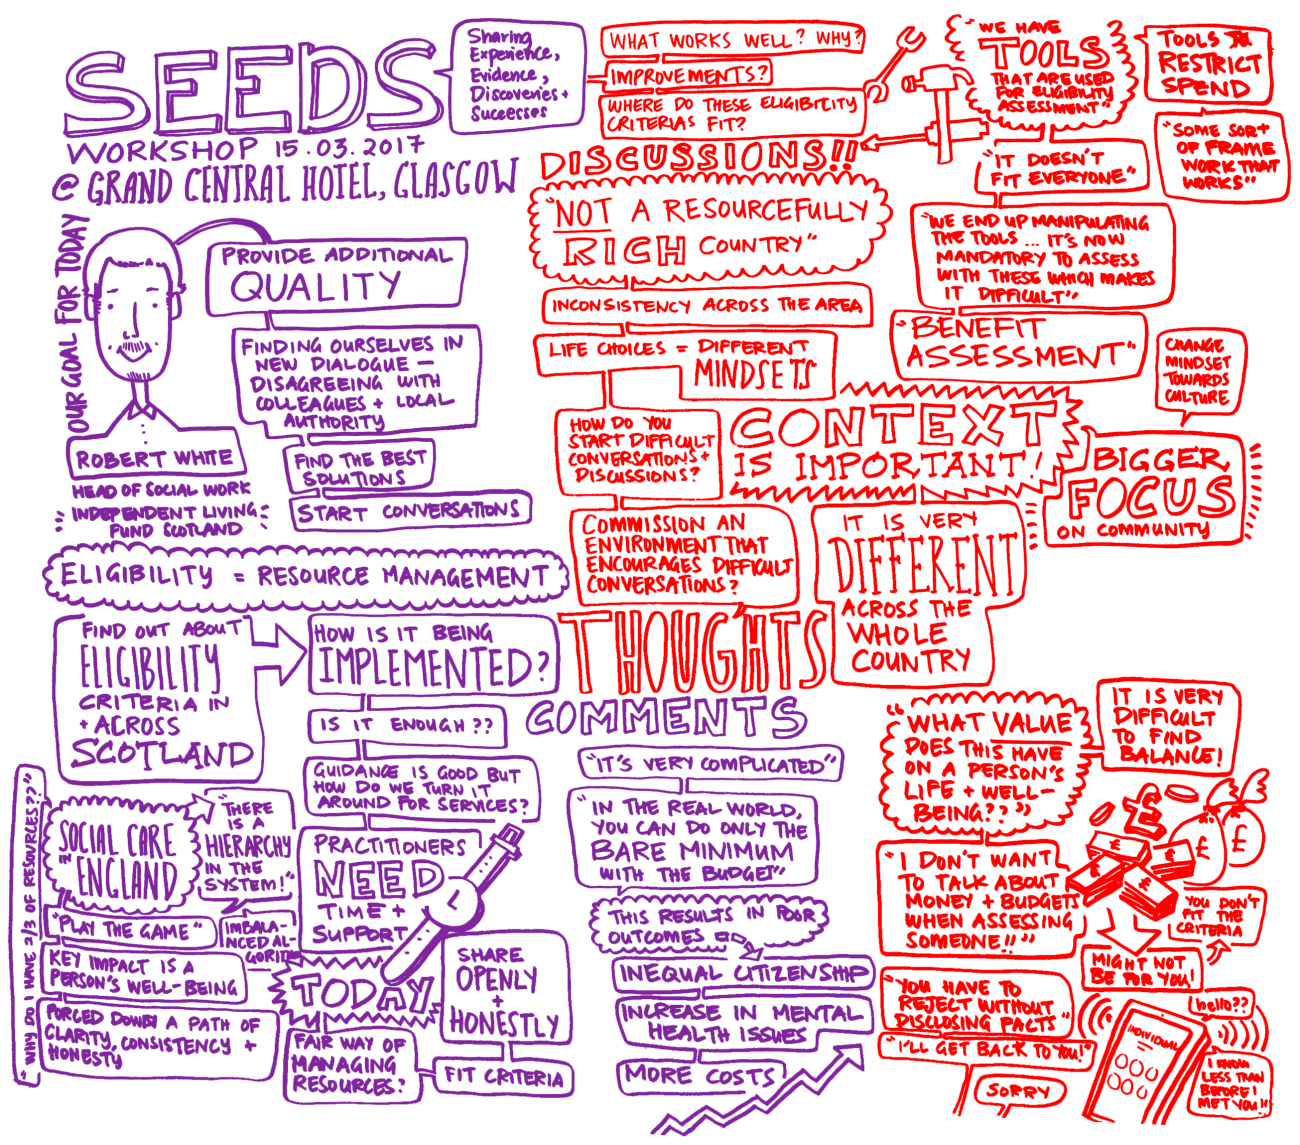 SEEDS
WORKSHOP 15.03.2017
@ GRAND CENTRAL HOTEL, GLASGOW
Sharing
Experience,
Evidence,
Discoveries +
Successes
WHAT WORKS WELL? WHY?
IMPROVEMENTS?
WHERE DO THESE ELIGIBILITY
CRITERIAS FIT?
OUR GOAL FOR TODAY
ROBERT WHITE
HEAD OF SOCIAL WORK
INDEPENDENT LIVING
FUND SCOTLAND
PROVIDE ADDITIONAL
QUALITY
FINDING OURSELVES IN
NEW DIALOGUE —
DISAGREEING WITH
COLLEAGUES + LOCAL
AUTHORITY
FIND THE BEST
SOLUTIONS
START CONVERSATIONS
ELIGIBILITY = RESOURCE MANAGEMENT
FIND OUT ABOUT
ELIGIBILITY
CRITERIA IN
+ ACROSS
SCOTLAND
HOW IS IT BEING
IMPLEMENTED?
IS IT ENOUGH??
GUIDANCE IS GOOD BUT
HOW DO WE TURN IT
AROUND FOR SERVICES?
PRACTITIONERS
NEED
TIME +
SUPPORT
"WHY DO I HAVE 2/3 OF RESOURCES??"
SOCIAL CARE
IN ENGLAND
"THERE
IS A
HIERARCHY
IN THE
SYSTEM!"
IMBALA-
NCED AL-
GORITHM
"PLAY THE GAME"
KEY IMPACT IS A
PERSON'S WELL-BEING
FORCED DOWN A PATH OF
CLARITY, CONSISTENCY +
HONESTY
TODAY
FAIR WAY OF
MANAGING
RESOURCES?
SHARE
OPENLY
+
HONESTLY
FIT CRITERIA
DISCUSSIONS!!
"NOT A RESOURCEFULLY
RICH COUNTRY"
INCONSISTENCY ACROSS THE AREA
LIFE CHOICES = DIFFERENT
MINDSETS
HOW DO YOU
START DIFFICULT
CONVERSATIONS +
DISCUSSIONS?
COMMISSION AN
ENVIRONMENT THAT
ENCOURAGES DIFFICULT
CONVERSATIONS?
"WE HAVE
TOOLS
THAT ARE USED
FOR ELIGIBILITY
ASSESSMENT"
TOOLS TO
RESTRICT
SPEND
"SOME SORT
OF FRAME
WORK THAT
WORKS"
"IT DOESN'T
FIT EVERYONE"
"WE END UP MANIPULATING
THE TOOLS ... IT'S NOW
MANDATORY TO ASSESS
WITH THESE WHICH MAKES
IT DIFFICULT"
"BENEFIT
ASSESSMENT"
CONTEXT
IS IMPORTANT!
CHANGE
MINDSET
TOWARDS
CULTURE
BIGGER
FOCUS
ON COMMUNITY
IT IS VERY
DIFFERENT
ACROSS THE
WHOLE
COUNTRY
THOUGHTS
COMMENTS
"IT'S VERY COMPLICATED"
"IN THE REAL WORLD,
YOU CAN DO ONLY THE
BARE MINIMUM
WITH THE BUDGET"
THIS RESULTS IN POOR
OUTCOMES
INEQUAL CITIZENSHIP
INCREASE IN MENTAL
HEALTH ISSUES
MORE COSTS
"WHAT VALUE
DOES THIS HAVE
ON A PERSON'S
LIFE + WELL-
BEING??"
IT IS VERY
DIFFICULT
TO FIND
BALANCE!
£
£
£
£
£
£
"I DON'T WANT
TO TALK ABOUT
MONEY + BUDGETS
WHEN ASSESSING
SOMEONE!!"
YOU DON'T
FIT THE
CRITERIA
MIGHT NOT
BE FOR YOU!
"YOU HAVE TO
REJECT WITHOUT
DISCLOSING FACTS"
"I'LL GET BACK TO YOU!"
SORRY
INDIVIDUAL
hello??
I KNOW
LESS THAN
BEFORE I
MET YOU!!